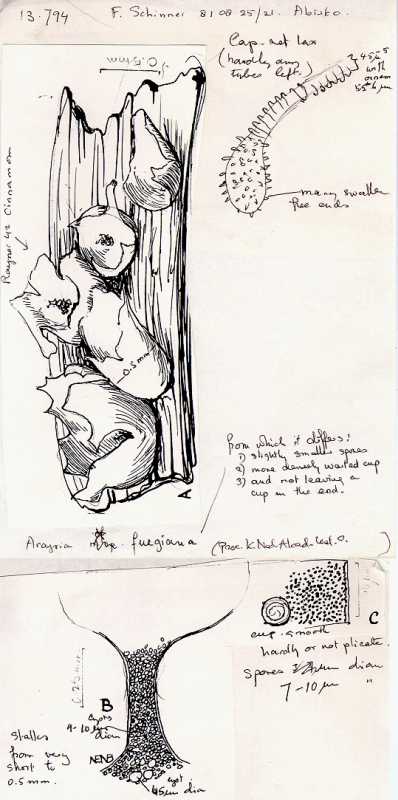 13.794 F. Schinner 81 08 25/21. Abisko.
0.5 mm
Cap. not lax
(hardly any
tubes left.)
4.5 µm
with
ornam
5.5-6 µm
many swollen
free ends
Rayner 42 Cinnamom
0.3 mm
A
from which it differs:
1) slightly smaller spores
2) more densely warted cup
3) and not leaving a
cup in the end.
Arcyria fuegiana (Proc. K. Ned. Akad.
C
cup smooth
hardly or not plicate.
spores µm diam
7-10 µm "
0.25 mm
B
9-10 µm
diam
Stalks
from very
short to
0.5 mm.
NB NB
cyst
45 µm dia